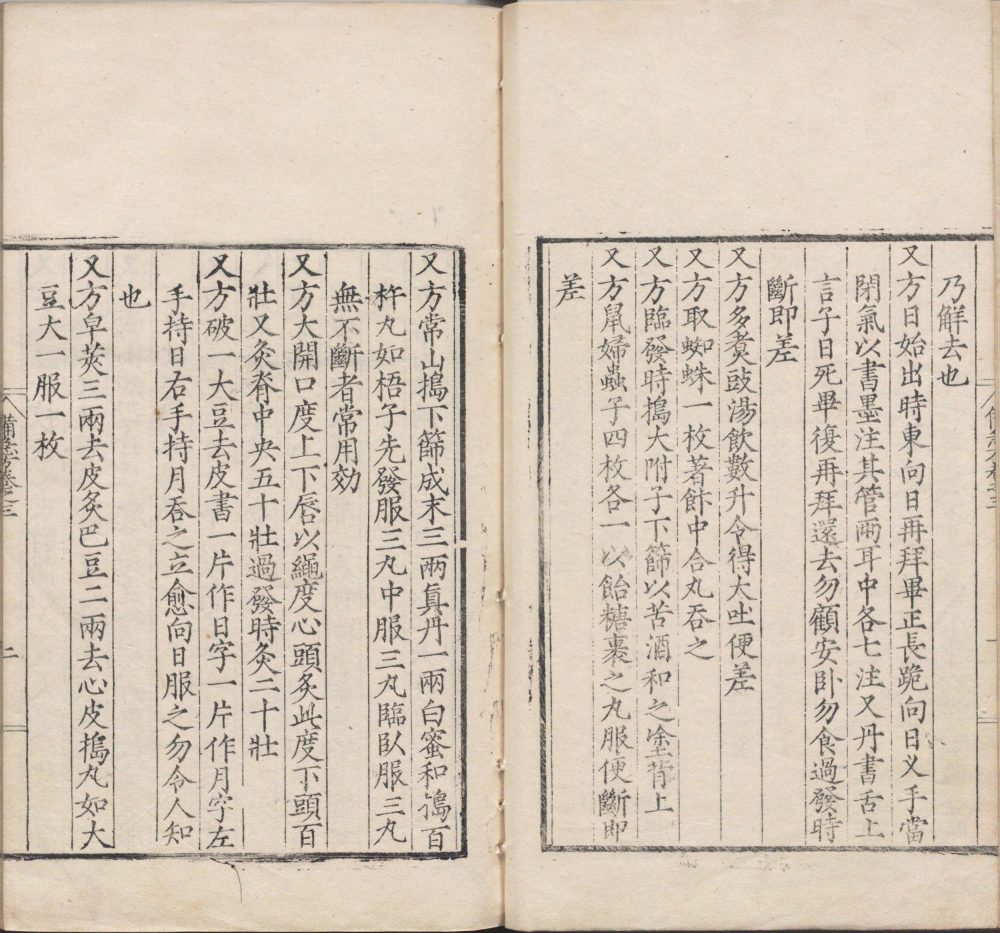 乃觧去也
又方日始出時東向日再拜畢正長跪向日义手當
閉氣以書墨注其管兩耳中各七注又丹書舌上
言子日死畢復再拜還去勿顧安卧勿食過發時
斷即差
又方多煑豉湯飲數升令得大吐便差
又方取蜘蛛一枚著餅中合丸吞之
又方臨發時搗大附子下篩以苦酒和之塗背上
又方鼠婦蟲子四枚各一以飴糖裹之丸服便斷即
差
又方常山搗下篩成末三兩真丹一兩白蜜和搗百
杵丸如梧子先發服三丸中服三丸臨臥服三丸
無不斷者常用効
又方大開口度上下唇以繩度心頭灸此度下頭百
壯又灸脊中央五十壯過發時灸二十壯
又方破一大豆去皮書一片作日字一片作月字左
手持日右手持月吞之立愈向日服之勿令人知
也
又方皁莢三兩去皮灸巴豆二兩去心皮搗丸如大
豆大一服一枚
二